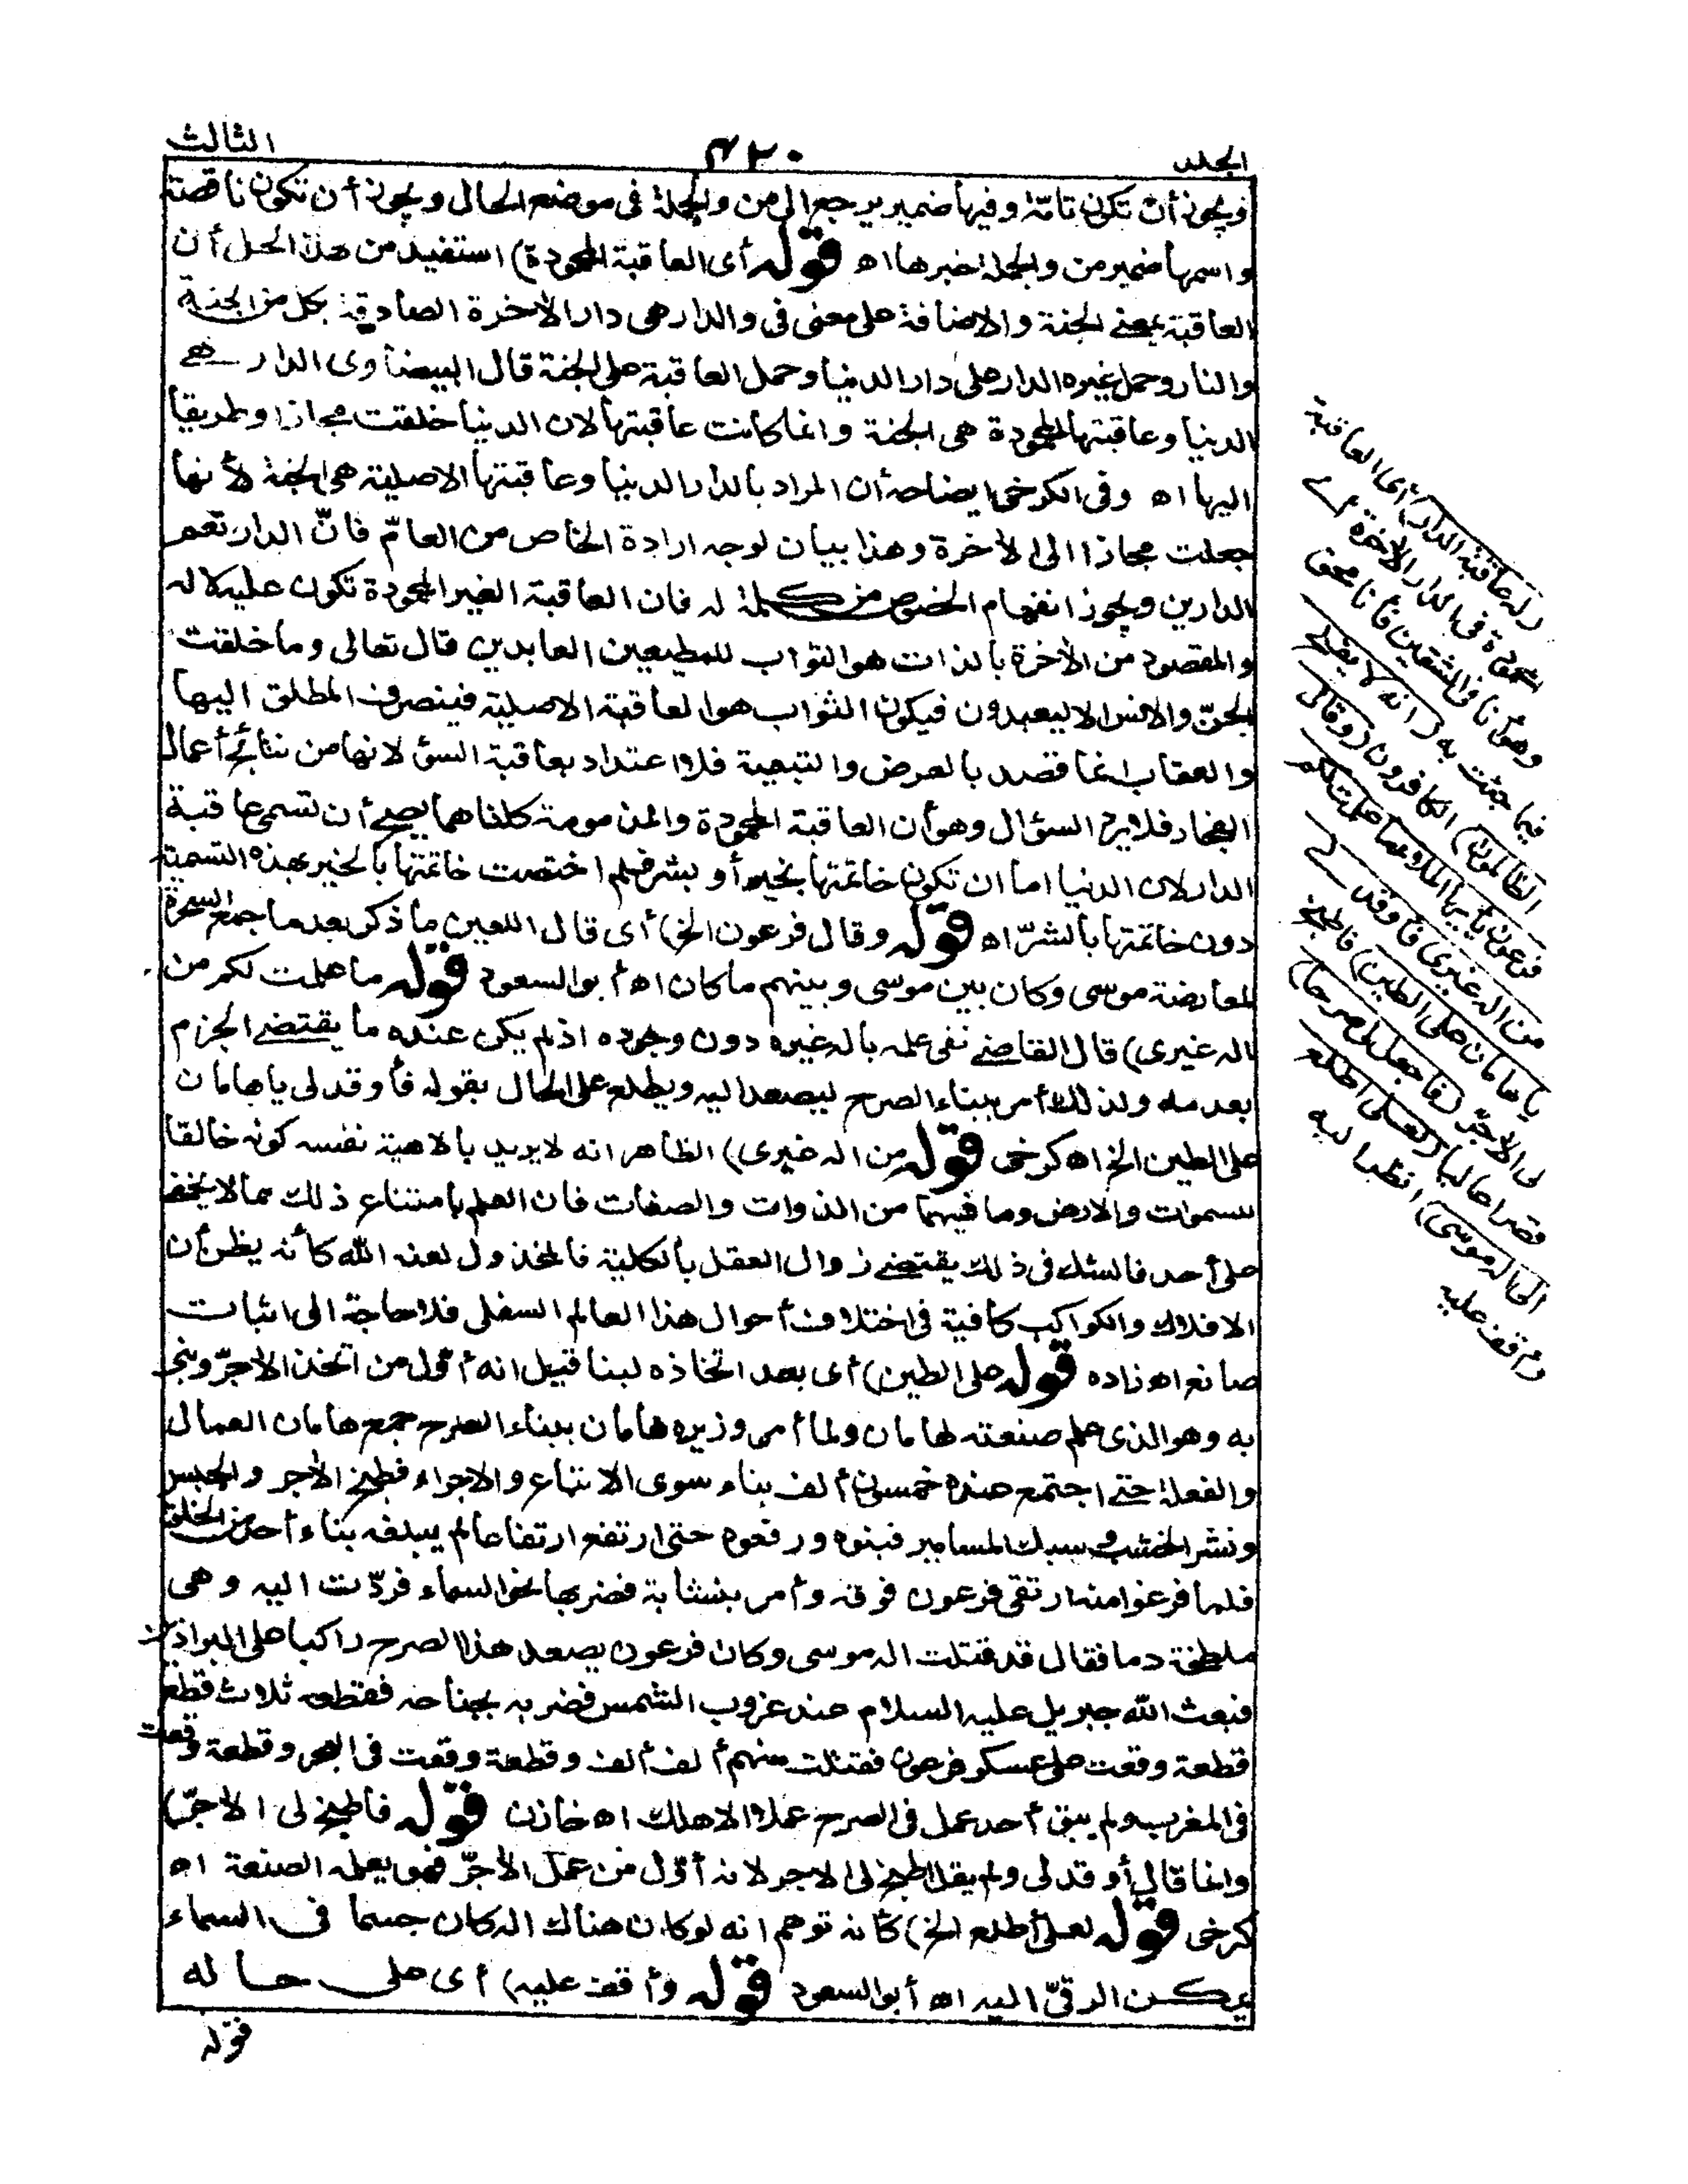 الجلد ٤٢٠ الثالث
ويجوز أن تكون تامّة وفيها ضمير يرجع الى من والجملة فى موضع الحال ويجوز أن تكون ناقصة
واسمها ضمير من والجملة خبرها اه قوله أى العاقبة المحمودة) استفيد من هذا الحل أن
العاقبة بمعنى الجنة والاضافة على معنى فى والدار هى دار الأخرة الصادقة بكل من الجنة
والنار وحمل غيره الدار على دار الدنيا وحمل العاقبة على الجنة قال البيضاوى الدار هى
الدنيا وعاقبتها المحمودة هى الجنة وانما كانت عاقبتها لان الدنيا خلقت مجازا وطريقا
اليها اه وفى الكرخى ايضاحه أن المراد بالدار الدنيا وعاقبتها الاصلية هى الجنة لأنها
جعلت مجازا الى الأخرة وهذا بيان لوجه ارادة الخاص من العامّ فانّ الدار تعم
الدارين ويجوز انفهام الخصوص من كلمة له فان العاقبة الغير المحمودة تكون عليه لا له
والمقصود من الأخرة بالذات هو الثواب للمطيعين العابدين قال تعالى وما خلقت
الجنّ والانس الا ليعبدون فيكون الثواب هو العاقبة الاصلية فينصرف المطلق اليها
والعقاب انما قصد بالعرض والتبعية فلا اعتداد بعاقبة السؤ لانها من نتائج أعمال
الفجار فلا يرد السؤال وهو أن العاقبة المحمودة والمذمومة كلتاهما يصح أن تسمى عاقبة
الدار لان الدنيا اما ان تكون خاتمتها بخير أو بشر فلم اختصت خاتمتها بالخير بهذه التسمية
دون خاتمتها بالشرّ اه قوله وقال فرعون الخ) أى قال اللعين ما ذكر بعد ما جمع السحرة
لمعارضة موسى وكان بين موسى وبينهم ما كان اه أبو السعود قوله ما علمت لكم من
اله غيرى) قال القاضى نفى علمه باله غيره دون وجوده اذ لم يكن عنده ما يقتضى الجزم
بعدمه ولذلك أمر ببناء الصرح ليصعد اليه ويطلع على الحال بقوله فأوقد لى ياهامان
على الطين الخ اه كرخى قوله من اله غيرى) الظاهر انه لا يريد بالاهية نفسه كونه خالقا
للسموات والارض وما فيهما من الذوات والصفات فان العلم بامتناع ذلك مما لا يخفى
على أحد فالشك فى ذلك يقتضى زوال العقل بالكلية فالمخذول لعنه الله كأنه يظن أن
الافلاك والكواكب كافية فى اختلاف أحوال هذا العالم السفلى فلا حاجة الى اثبات
صانع اه زاده قوله على الطين) أى بعد اتخاذه لبنا قيل انه أوّل من اتخذ الأجرّ وبنى
به وهو الذى علم صنعته لهامان ولما أمر وزيره هامان ببناء الصرح جمع هامان العمال
والفعلة حتى اجتمع عنده خمسون ألف بناء سوى الاتباع والاجراء فطبخ الأجر والجبس
ونشر الخشب وسبك المسامير فبنوه ورفعوه حتى ارتفع ارتفاعا لم يبلغه بناء أحد من الخلق
فلما فرغوا منه ارتقى فرعون فوقه وأمر بنشابة فضرب بها نحو السماء فردّت اليه وهى
ملطخة دما فقال قد قتلت اله موسى وكان فرعون يصعد هذا الصرح راكبا على البراذين
فبعث الله جبريل عليه السلام عند غروب الشمس فضربه بجناحه فقطعه ثلاث قطع
قطعة وقعت على عسكر فرعون فقتلت منهم ألف ألف وقطعة وقعت فى البحر وقطعة وقعت
فى المغرب ولم يبق أحد عمل فى الصرح عملا الا هلك اه خازن قوله فاطبخ لى الأجرّ)
وانما قال أوقد لى ولم يقل اطبخ لى الاجر لانه أوّل من عمل الأجرّ فهو يعلمه الصنعة اه
كرخى قوله لعلى أطلع الخ) كأنه توهم انه لو كان هناك اله كان جسما فى السماء
يمكن الرقىّ اليه اه أبو السعود قوله وأقف عليه) أى على حاله
قوله
(له عاقبة الدار) أى العاقبة
المحمودة فى الدار الأخرة
وهو أنا فى الشقين فأنا محق
فيما جئت به (انه لا يفلح
الظالمون) الكافرون (وقال
فرعون يأيها الملأ ما علمت لكم
من اله غيرى فأوقد لى
ياهامان على الطين) فاطبخ
لى الأجرّ (فاجعل لى صرحا)
قصرا عاليا (لعلى اطلع
الى اله موسى) انظر اليه
وأقف عليه